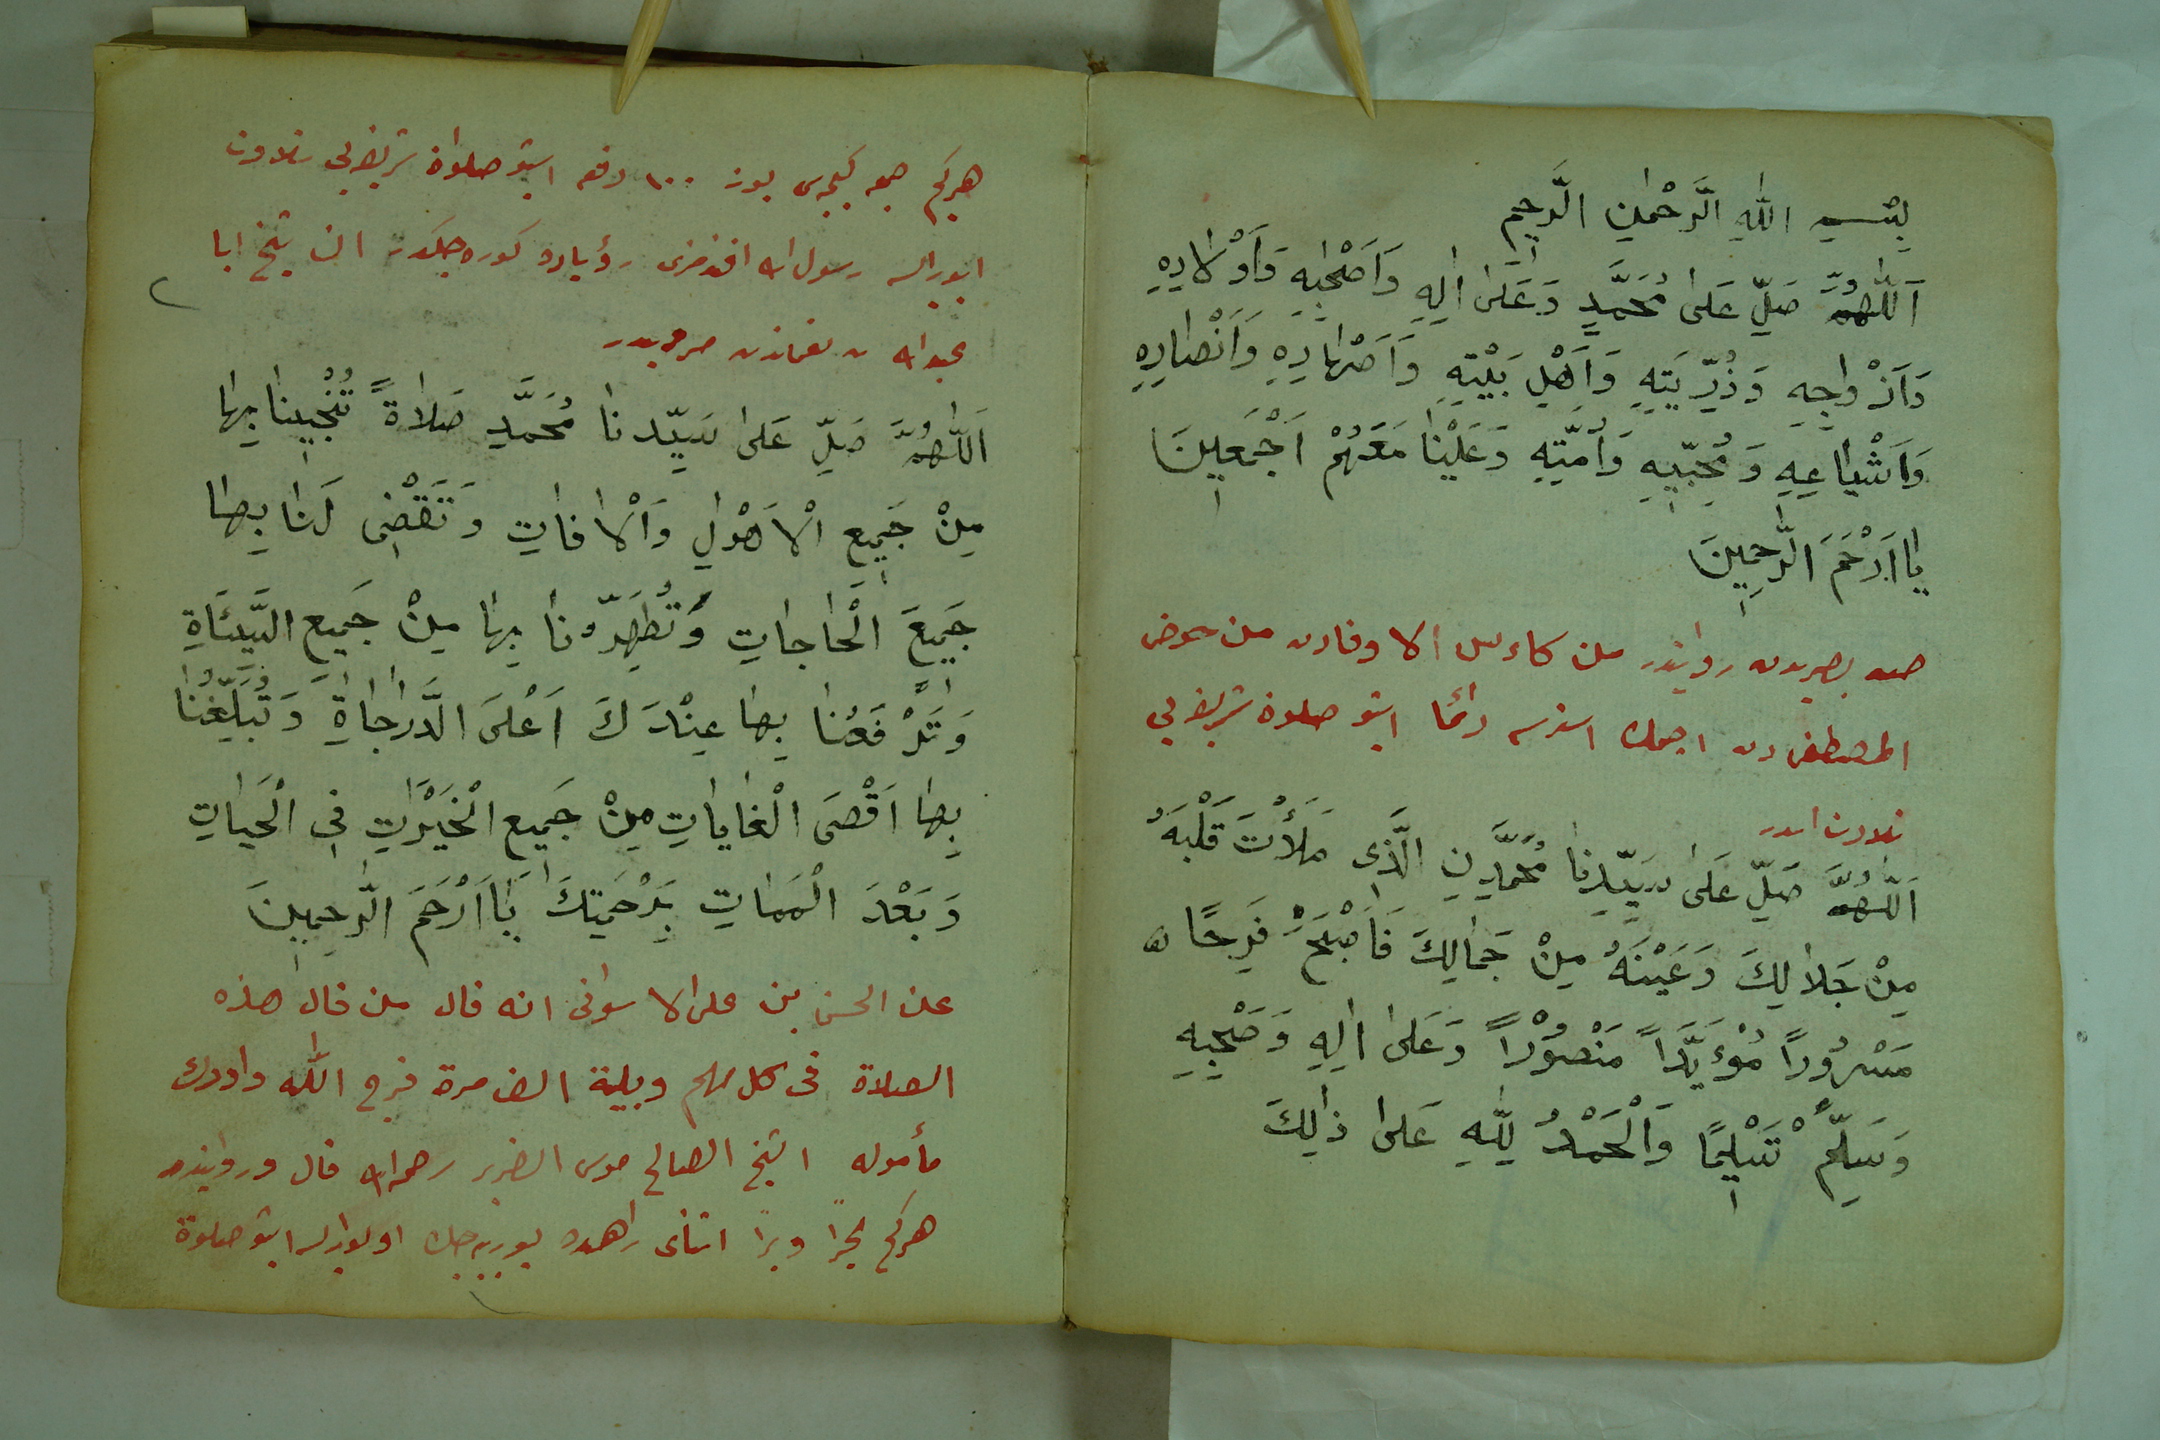 بِسْمِ اللّٰهِ الرَّحْمٰنِ الرَّحِيمِ
اَللّٰهُمَّ صَلِّ عَلٰى مُحَمَّدٍ وَعَلٰى اٰلِهِ وَاَصْحٰبِهِ وَاَوْلَادِهِ
وَاَزْوَاجِهِ وَذُرِّيَتِهِ وَاَهْلِ بَيْتِهِ وَاَصْهَارِهِ وَاَنْصَارِهِ
وَاَشْيَاعِهِ وَمُحِبِّيهِ وَاُمَّتِهِ وَعَلَيْنَا مَعَهُمْ اَجْمَعِينَ
يَا اَرْحَمَ الرَّاحِمِينَ
حسن بصريدن روايتدر من كاءس الاوفادن من حوض
المصطفى دن ايچمك استرسه دائما اشبو صلوة شريفه يى
تلاوت ايده
اَللّٰهُمَّ صَلِّ عَلٰى سَيِّدِنَا مُحَمَّدٍنِ الَّذِى مَلَأْتَ قَلْبَهُ
مِنْ جَلَالِكَ وَعَيْنَهُ مِنْ جَمَالِكَ فَاَصْبَحَ فَرِحًا
مَسْرُورًا مُؤَيَّدًا مَنْصُورًا وَعَلٰى اٰلِهِ وَصَحْبِهِ
وَسَلِّمْ تَسْلِيمًا وَالْحَمْدُ لِلّٰهِ عَلٰى ذٰلِكَ
هركيم جمعه كيجه سى يوز ١٠٠ دفعه اشبو صلواة شريفه يى تلاوت
ايدر ايسه رسول الله افندمزى رؤياده كوره جكدر الشيخ ابا
عبدالله بن نعماندن مرويدر
اَللّٰهُمَّ صَلِّ عَلٰى سَيِّدِنَا مُحَمَّدٍ صَلَاةً تُنْجِينَا بِهَا
مِنْ جَمِيعِ الْاَهْوَالِ وَالْاٰفَاتِ وَتَقْضِى لَنَا بِهَا
جَمِيعَ الْحَاجَاتِ وَتُطَهِّرُنَا بِهَا مِنْ جَمِيعِ السَّيِّئَاةِ
وَتَرْفَعُنَا بِهَا عِنْدَكَ اَعْلَى الدَّرَاجَاةِ وَتُبَلِّغُنَا
بِهَا اَقْصَى الْغَايَاتِ مِنْ جَمِيعِ الْخَيْرَاتِ فِى الْحَيَاتِ
وَبَعْدَ الْمَمَاتِ بِرَحْمَتِكَ يَا اَرْحَمَ الرَّاحِمِينَ
عن الحسن بن على الاسوانى انه قال من قال هذه
الصلاة فى كل مهم وبلية الف مرة فرج الله وادرك
مأموله الشيخ الصالح موسى الضرير رحمه الله قال وروايتدر
هركيم بحرًا وبرًا اثناى راهده يوريه جك اولور ايسه اشبو صلوة